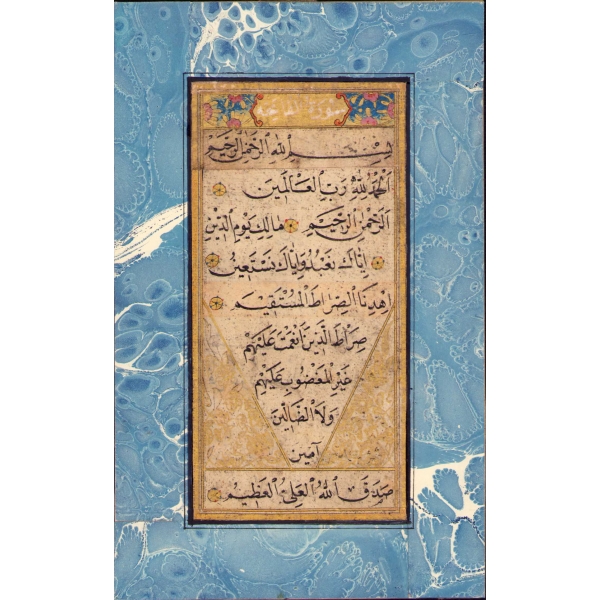 سورة الفاتحة
بِسْمِ اللهِ الرَّحْمٰنِ الرَّحِيْمِ
اَلْحَمْدُ لِلّٰهِ رَبِّ الْعَالَمِيْنَ
اَلرَّحْمٰنِ الرَّحِيْمِ مَالِكِ يَوْمِ الدِّيْنِ
اِيَّاكَ نَعْبُدُ وَاِيَّاكَ نَسْتَعِيْنُ
اِهْدِنَا الصِّرَاطَ الْمُسْتَقِيْمَ
صِرَاطَ الَّذِيْنَ اَنْعَمْتَ عَلَيْهِمْ
غَيْرِ الْمَغْضُوْبِ عَلَيْهِمْ
وَلَا الضَّالِّيْنَ
آمين
صَدَقَ اللهُ الْعَلِيُّ الْعَظِيْمُ